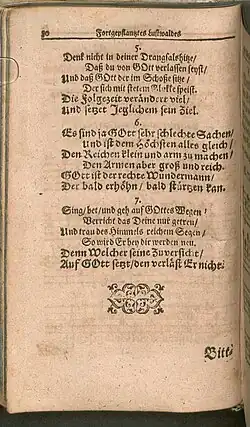 80 Fortgepflantztes Lustwaldes
5.
Denk nicht in deiner Drangsalshitze/
Daß du von GOtt verlassen seyst/
Und daß GOtt der im Schoße sitze/
Der sich mit stetem Glükke speist.
Die Folgezeit verändert viel/
Und setzet Jeglichem sein Ziel.
6.
Es sind ja GOtt sehr schlechte Sachen/
Und ist dem Höchsten alles gleich/
Den Reichen klein und arm zu machen/
Den Armen aber groß und reich.
GOtt ist der rechte Wundermann/
Der bald erhöhn/ bald stürtzen kan.
7.
Sing/ bet/ und geh auf GOttes Wegen/
Verricht das Deine nur getreu/
Und trau des Himmels reichem Segen/
So wird Er bey dir werden neu.
Denn Welcher seine Zuversicht/
Auf GOtt setzt/ den verläst Er nicht.
Bitt-